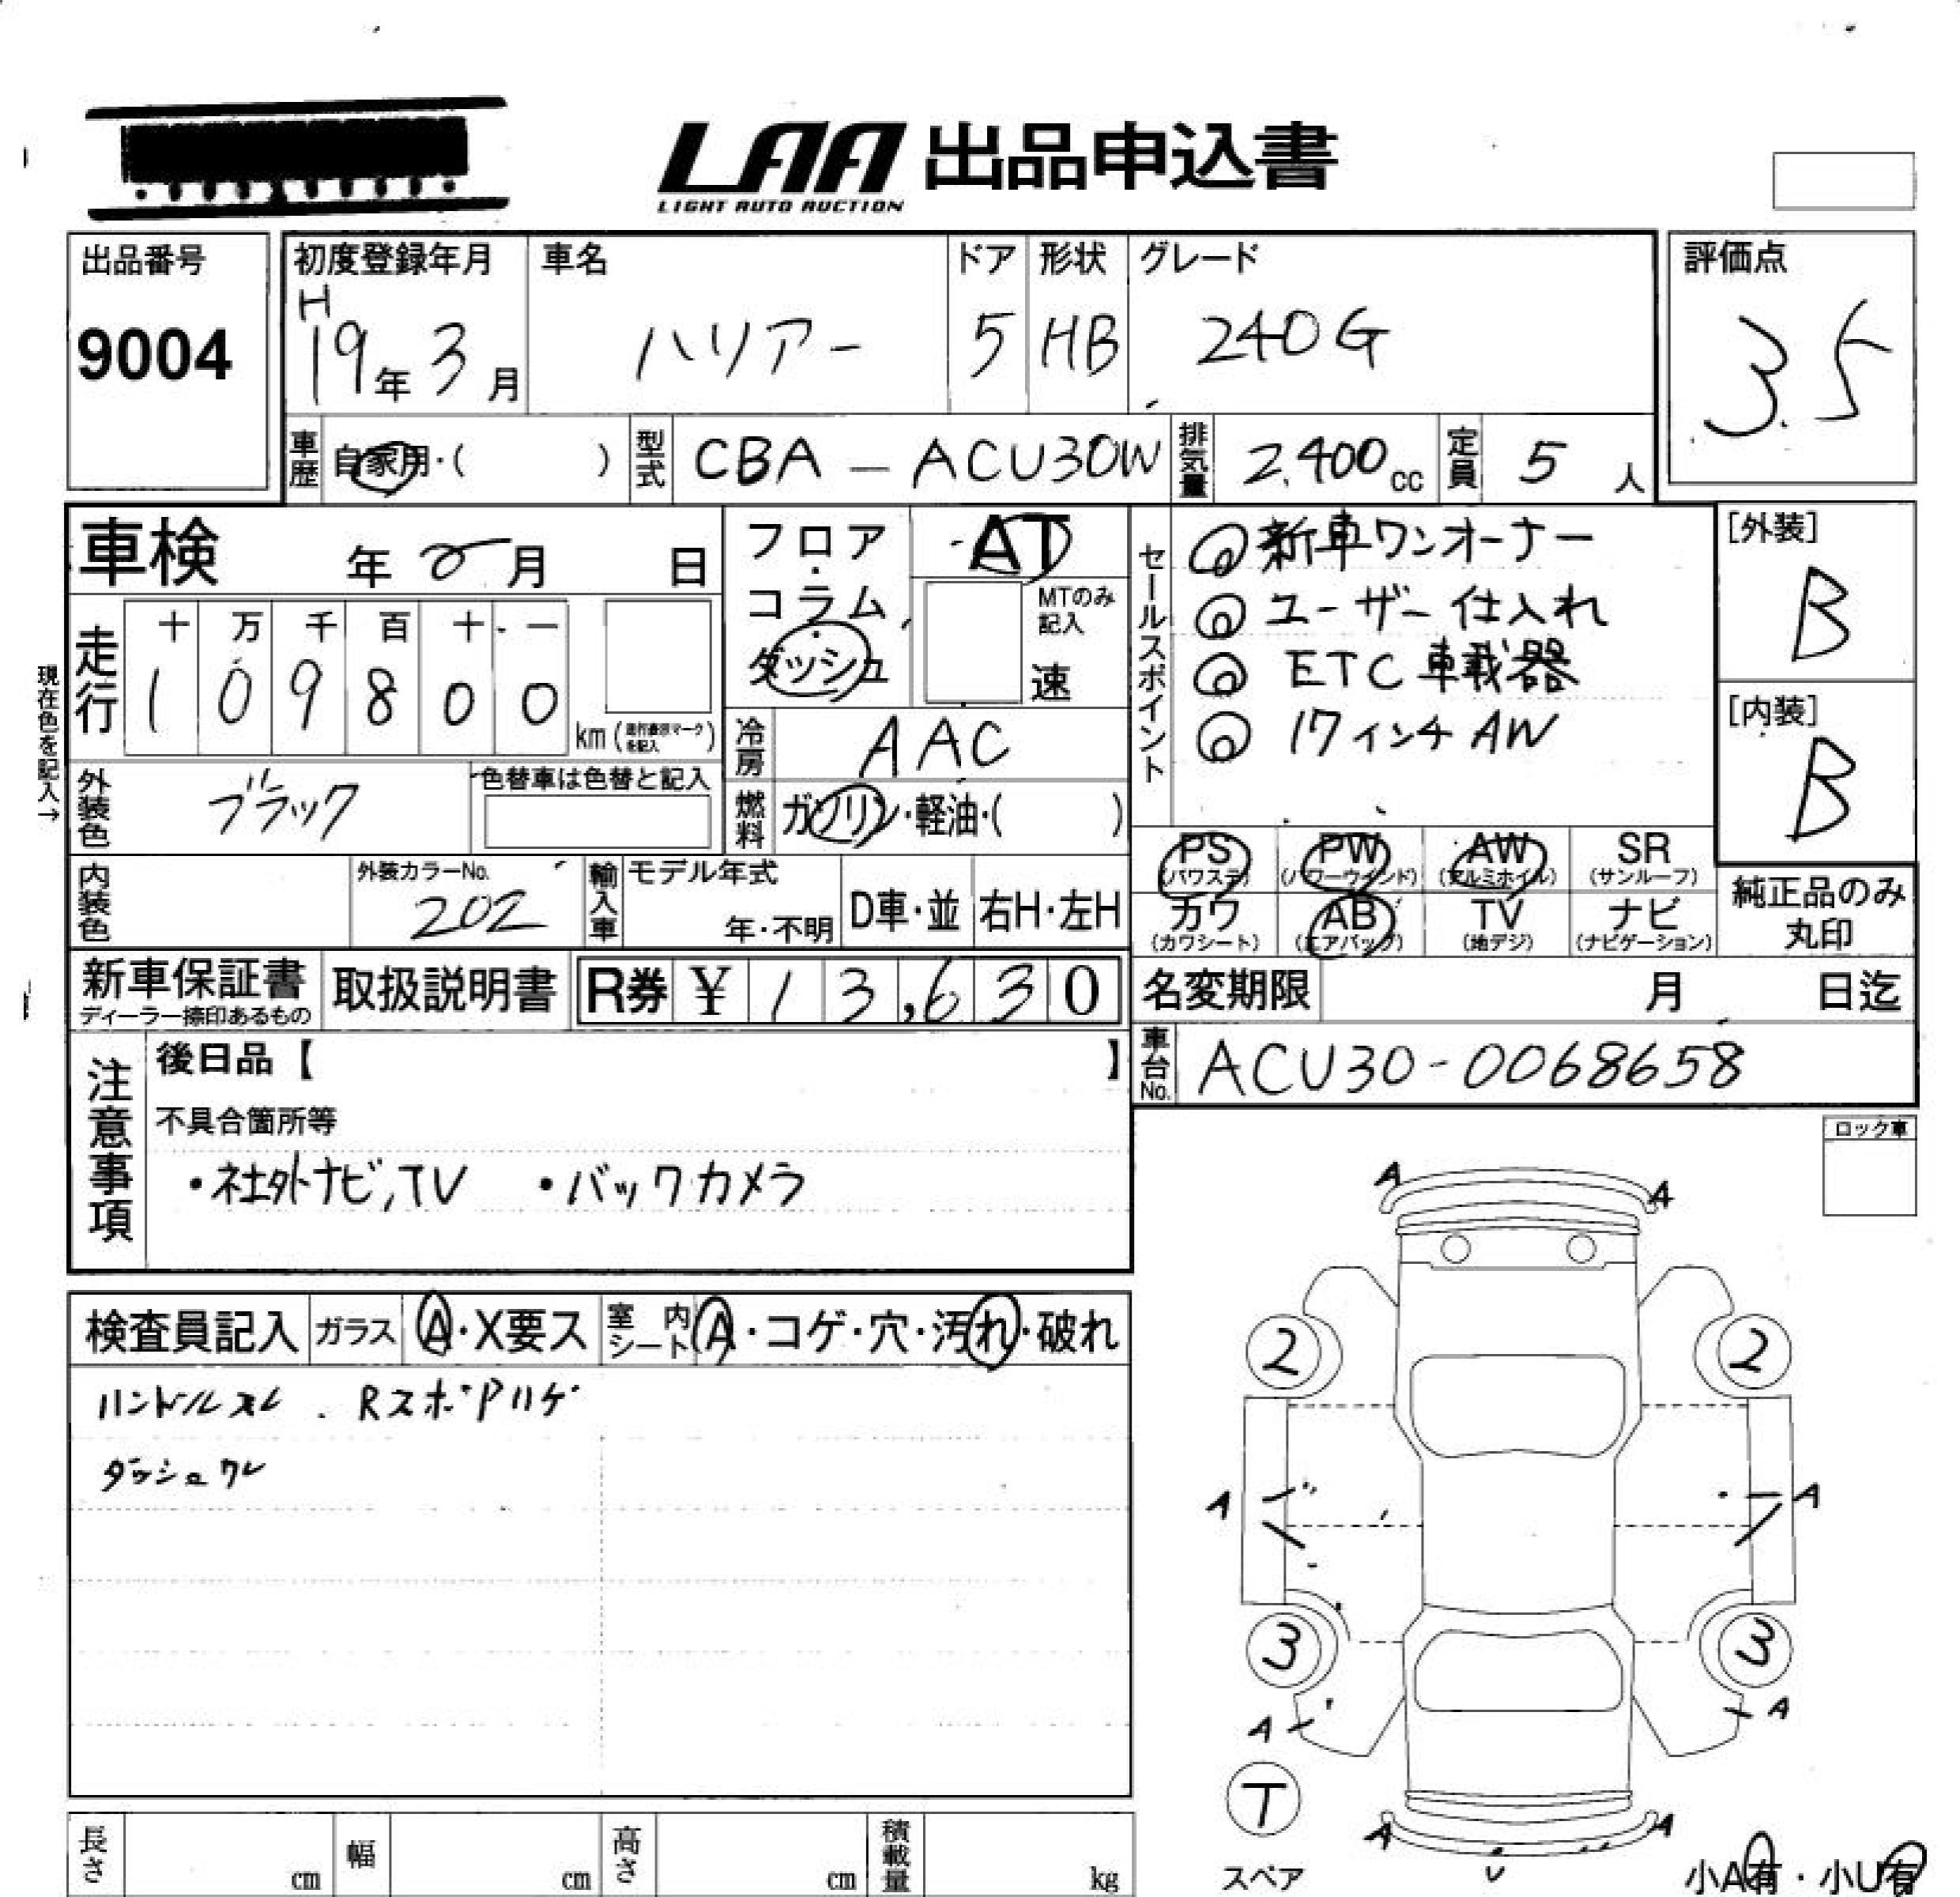 LAA 出品申込書
LIGHT AUTO AUCTION
出品番号
9004
初度登録年月
H
19年 3月
車名
ハリアー
ドア
5
形状
HB
グレード
240G
評価点
3.5
車歴
自家用・( )
型式
CBA - ACU30W
排気量
2,400cc
定員
5人
車検 年 月 日
走行
十 万 千 百 十 一
1 0 9 8 0 0
km
現在色を記入→
外装色
ブラック
色替車は色替と記入
内装色
外装カラーNo.
202
フロア・コラム・ダッシュ
AT
MTのみ記入
速
冷房
AAC
燃料
ガソリン・軽油・( )
輸入車
モデル年式
年・不明
D車・並
右H・左H
セールスポイント
◎新車ワンオーナー
◎ユーザー仕入れ
◎ETC車載器
◎17インチAW
[外装]
B
[内装]
B
PS
(パワステ)
PW
(パワーウインド)
AW
(アルミホイル)
SR
(サンルーフ)
カワ
(カワシート)
AB
(エアバッグ)
TV
(地デジ)
ナビ
(ナビゲーション)
純正品のみ
丸印
新車保証書
ディーラー捺印あるもの
取扱説明書
R券 ¥ 13,630
名変期限 月 日迄
車台No.
ACU30-0068658
注意事項
後日品【 】
不具合箇所等
・社外ナビ,TV ・バックカメラ
ロック車
検査員記入
ガラス
A・X要ス
室内シート
A・コゲ・穴・汚れ・破れ
ハンドルスレ . RスポPハゲ
ダッシュワレ
A A
2 2
A A
3 3
A A
T
スペア
A A
U
小A有・小U有
長さ cm
幅 cm
高さ cm
積載量 kg